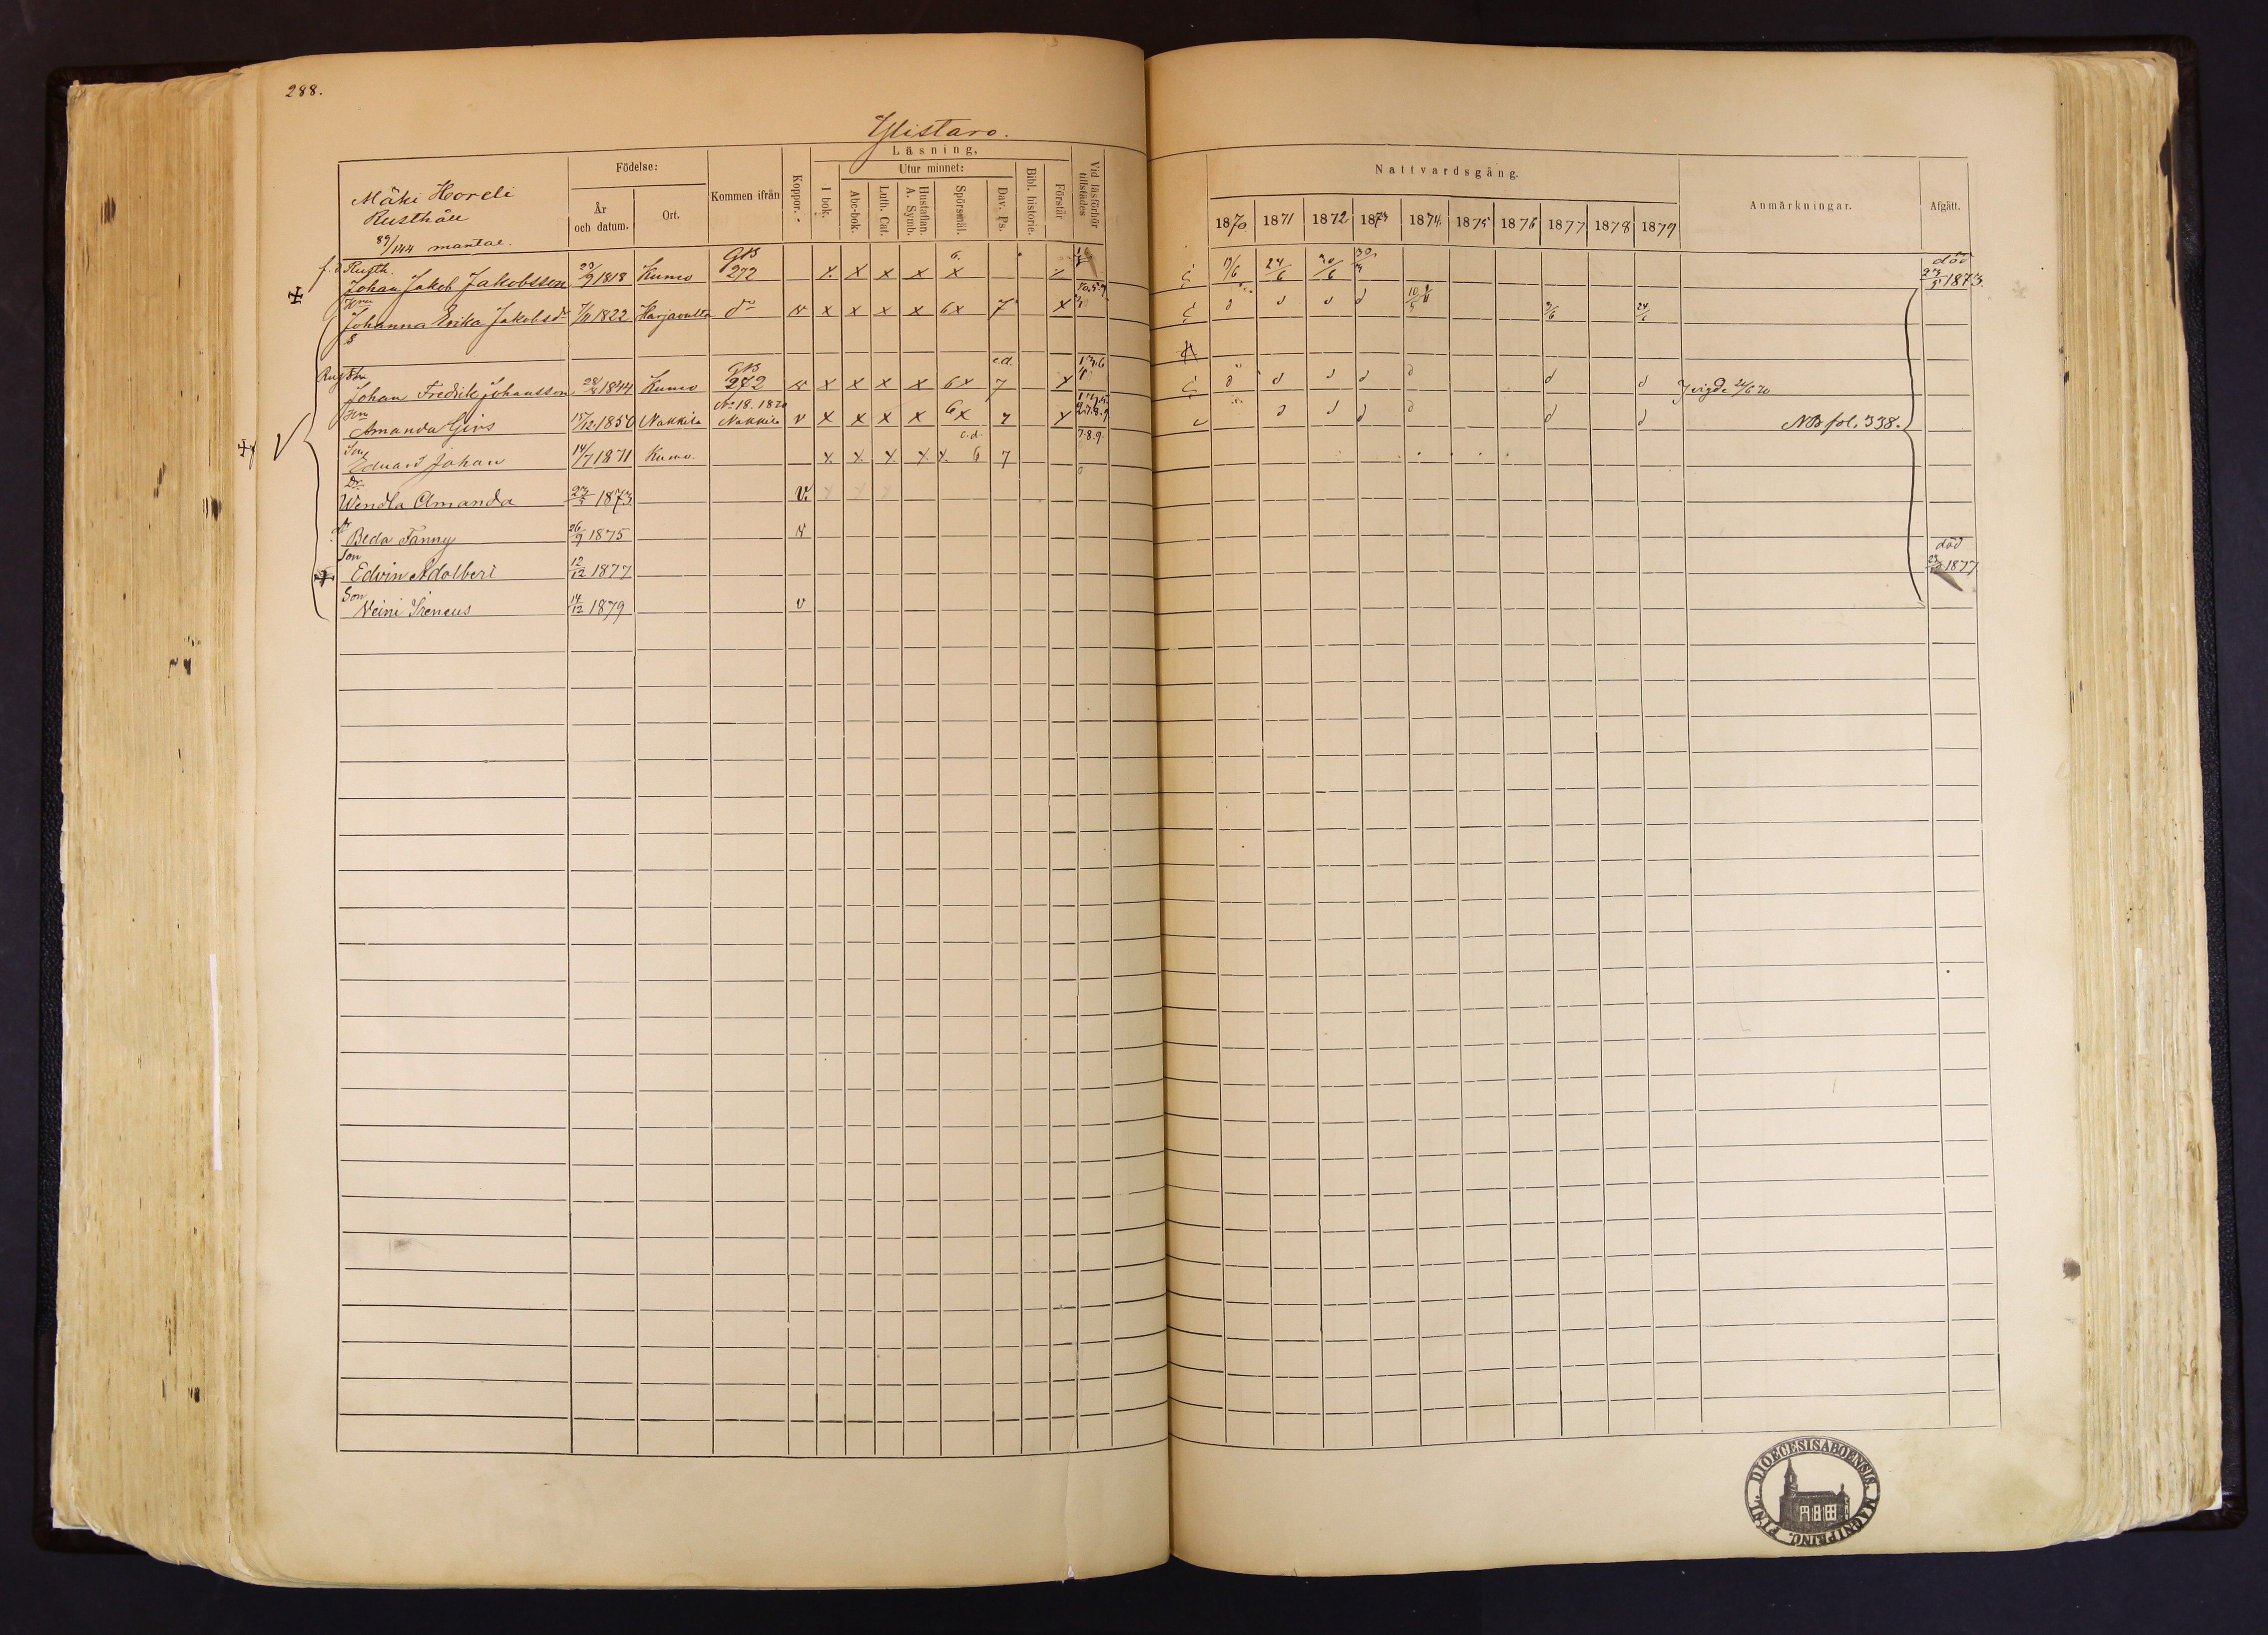 288.
Ylistaro.
Mäki Horeli
Rusthåll
89/144 mantal.
Födelse:
År och datum.
Ort.
Kommen ifrån
Koppor.
Läsning,
I bok.
Utur minnet:
Abc-bok.
Luth. Cat.
Hustaflan. A. Symb.
Spörsmål.
Dav. Ps.
Bibl. historie.
Förstår
Vid läsförhör tillstädes
Nattvardsgång.
1870 1871 1872 1873 1874 1875 1876 1877 1878 1879
Anmärkningar.
Afgått.
f.d. Rusth. G.B. 6. död
Johan Jakob Jakobsson 23/9 1818 Kumo 272 x x x x x 17/6 24/6 30/6 23/5 1873.
Hru
Johanna Erika Jakobsdr 7/11 1822 Harjavalta do v x x x x 6x 7 x 9/6 24/6
S
Rusth. G.B. c.d.
Johan Fredrik Johansson 28/2 1844 Kumo 272 v x x x x 6x 7 x d d d d d d d vigde 24/6 70
Hru No 18. 1870
Amanda Girs 15/12 1850 Nakkila Nakkila v x x x x 6x 7 x 2.7.8.9 d d d d d d NB fol. 338.
Son c.d. 7.8.9.
Eduard Johan 14/7 1871 Kumo. x x x x x 6 7
Dr.
Wendla Amanda 23/5 1873 v. x x x
dr
Beda Fanny 26/9 1875 v
Son död
Edvin Adolbert 12/12 1877 1877
Son
Veini Ireneus 14/12 1879 v
FINL. DIOECESIS ABOENSIS MAGNI PRINC.